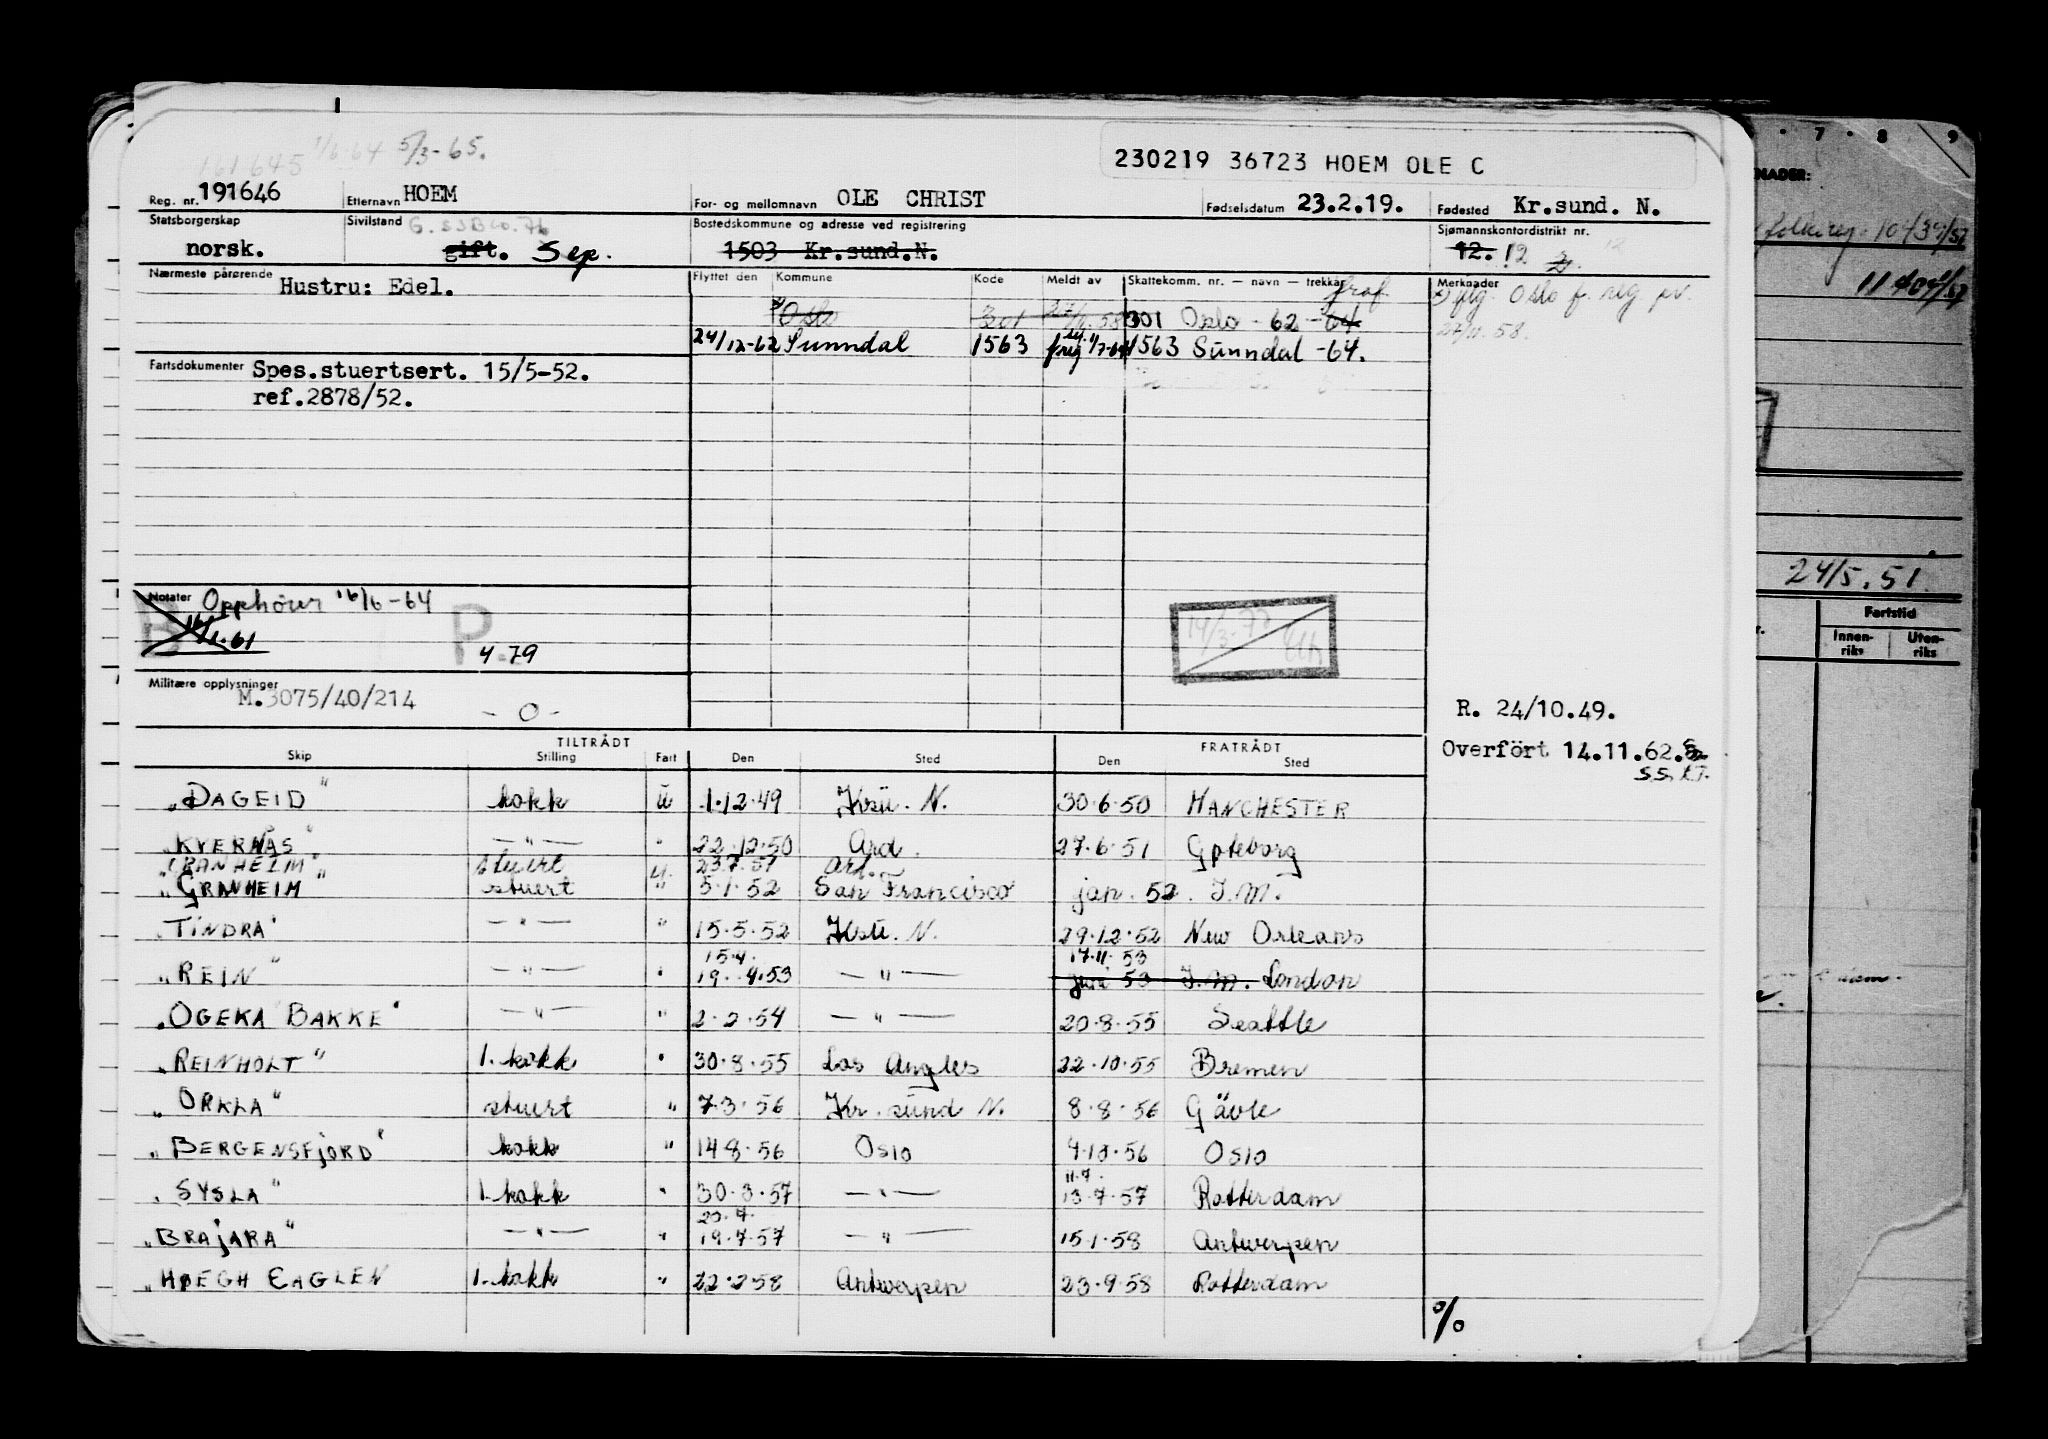 161645 1/6-64 5/3-65.
230219 36723 HOEM OLE C
Reg. nr. 191646 Etternavn HOEM For- og mellomnavn OLE CHRIST Fødselsdatum 23.2.19. Fødested Kr.sund. N.
Statsborgerskap norsk. Sivilstand gift. Sep.
Bostedskommune og adresse ved registrering 1503 Kr.sund.N.
Sjømannskontordistrikt nr. 12. 12
Nærmeste pårørende Hustru: Edel.
Flyttet den Kommune Kode Meldt av Skattekomm. nr. — navn — trekkår Merknader
Oslo 301 301 Oslo - 62 - 64
Oslo f. reg.
24/12-62 Sunndal 1563 1563 Sunndal -64.
Fartsdokumenter Spes.stuertsert. 15/5-52.
ref.2878/52.
Notater Opphører 16/6-64
P 4.79
Militære opplysninger
M.3075/40/214 - O -
R. 24/10.49.
Overført 14.11.62.
TILTRÅDT FRATRÅDT
Skip Stilling Fart Den Sted Den Sted
"DAGEID" kokk u 1.12.49 Ksu. N. 30.6.50 MANCHESTER
"KVERNÅS" —"— " 22.12.50 Ard. 27.6.51 Gøteborg
"GRANHEIM" stuert u. 23.7.51 Ard.
"GRANHEIM" stuert " 5.1.52 San Francisco jan. 52. I.M.
"TINDRA" —"— " 15.5.52 Ksu. N. 29.12.52 New Orleans
15.4. 17.11.53
"REIN" —"— " 19.4.53 —"— juni 53 I.M. London
"OGEKA BAKKE" —"— " 2.2.54 —"— 20.8.55 Seattle
"REINHOLT" 1. kokk " 30.8.55 Los Angles 22.10.55 Bremen
"ORKLA" stuert " 7.3.56 Kr. sund N. 8.8.56 Gävle
"BERGENSFJORD" kokk " 14.8.56 Oslo 4.10.56 Oslo
11.7.
"SYSLA" 1. kokk " 30.3.57 —"— 13.7.57 Rotterdam
20.7.
"BRAJARA" —"— " 19.7.57 —"— 15.1.58 Antwerpen
"HØEGH EAGLEN" 1. kokk " 22.2.58 Antwerpen 23.9.58 Rotterdam
%
7 8 9
24/5.51
Fartstid
Innen-
riks
Uten-
riks